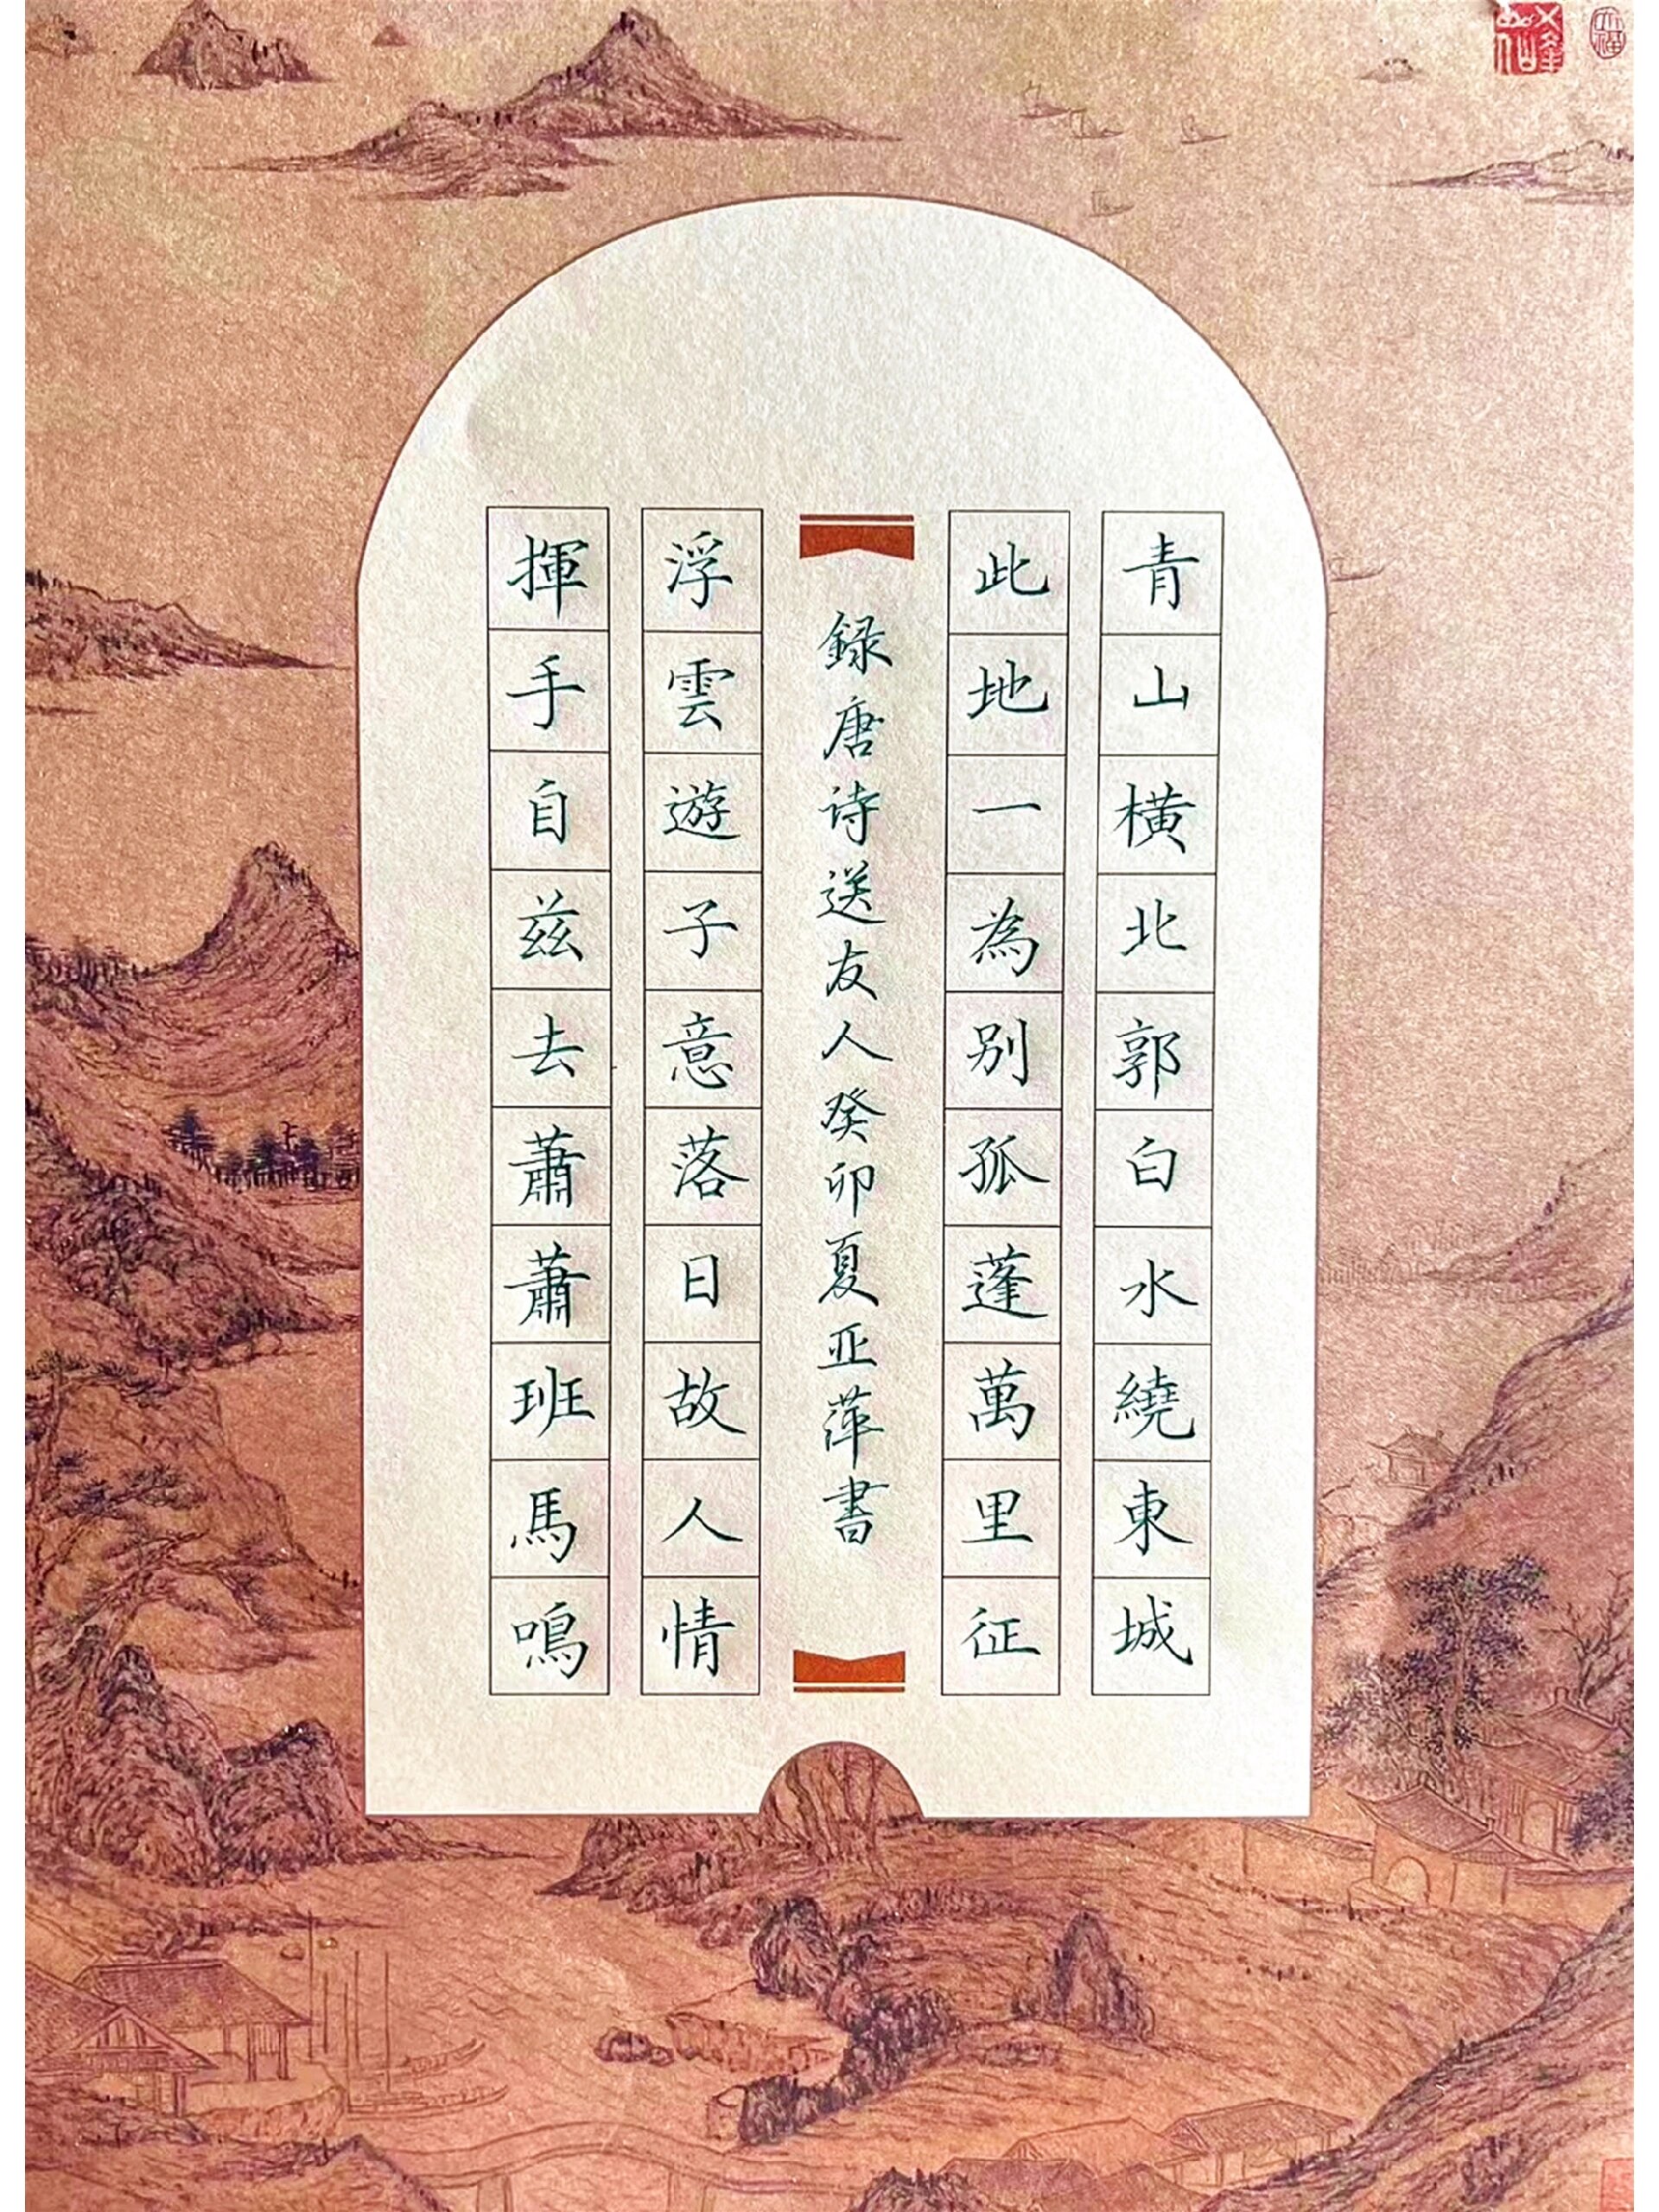 青山橫北郭白水繞東城
此地一為別孤蓬萬里征
録唐诗送友人癸卯夏亚萍書
浮雲遊子意落日故人情
揮手自兹去蕭蕭班馬鳴